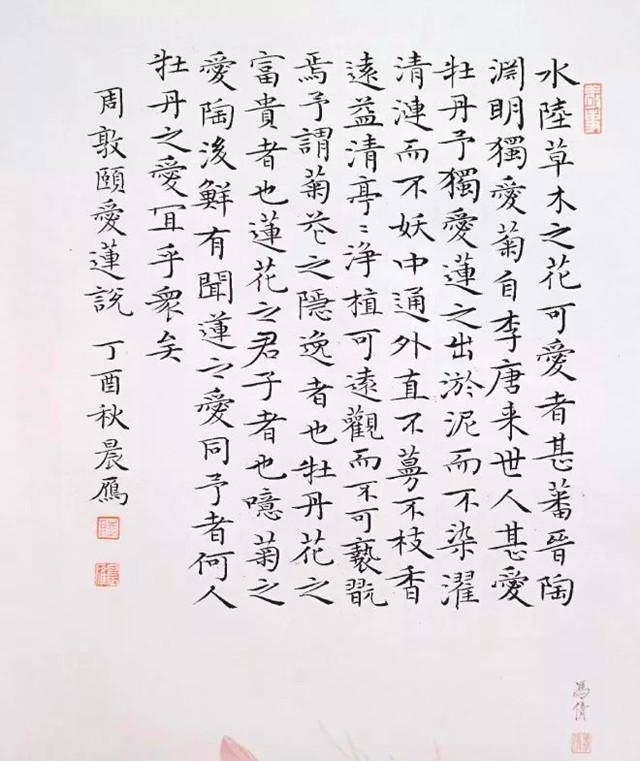 水陸草木之花可愛者甚蕃晉陶
淵明獨愛菊自李唐来世人甚愛
牡丹予獨愛蓮之出淤泥而不染濯
清漣而不妖中通外直不蔓不枝香
遠益清亭〻浄植可遠觀而不可褻翫
焉予謂菊花之隱逸者也牡丹花之
富貴者也蓮花之君子者也噫菊之
愛陶後鮮有聞蓮之愛同予者何人
牡丹之愛宜乎衆矣
周敦頤愛蓮說 丁酉秋晨雁
馮倩